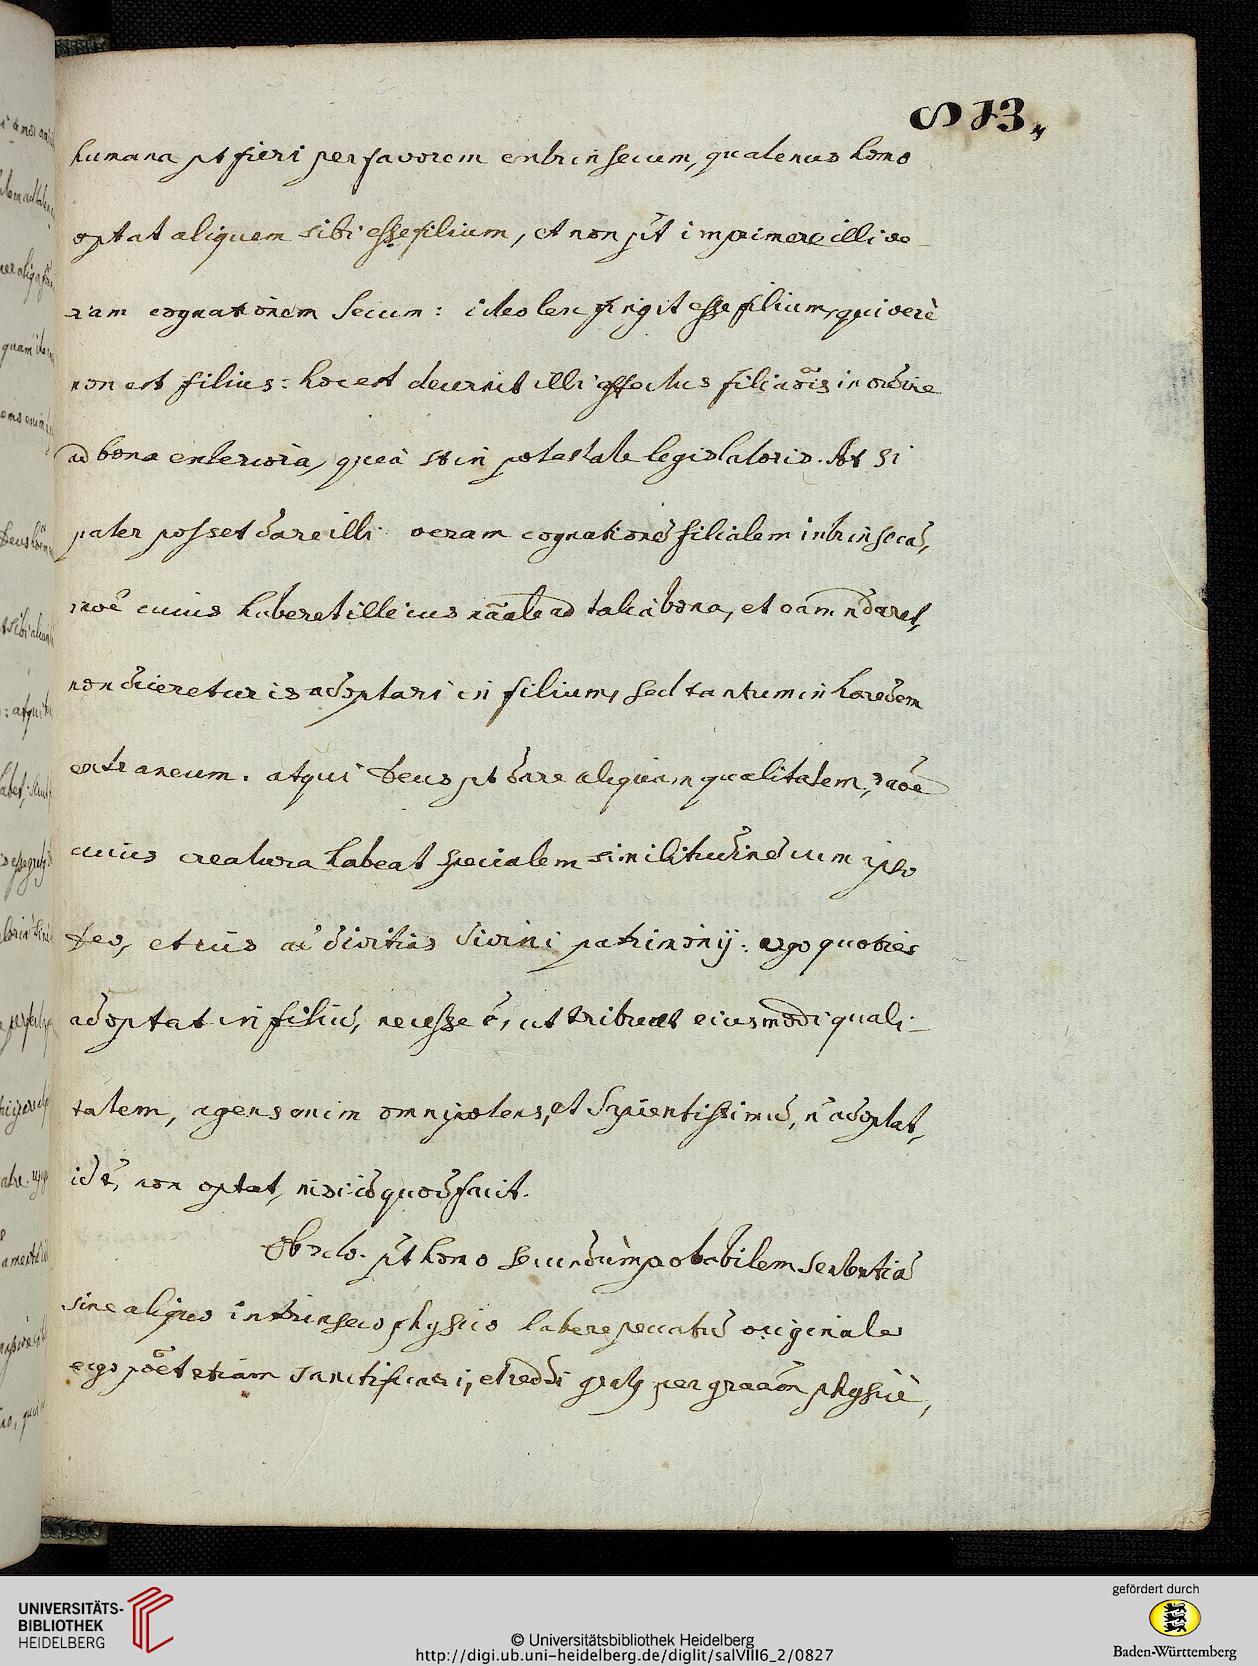 813.
humana pt fieri per favorem extrinsecum, quatenus homo
optat aliquem sibi esse filium, et non pt imprimere illi ve-
ram cognationem secum: ideo lex fingit esse filium, qui verè
non est filius: hoc est decernit illi effectus filiaōis in ordine
ad bona exteriora, quea st in potestate legislatoris. At si
pater posset dare illi veram cognationē filialem intrinsecā,
raōe cuius haberet ille ius nāale ad talia bona, et eam n̄ daret,
non diceretur is adoptari in filium, sed tantum in haeredem
extraneum. atqui Deus pt dare aliquam qualitatem, raōe
cuius creatura habeat specialem similitudinē cum ipso
Deo, et ius ad divitias divini patrimonij: ergo quoties
adoptat in filiū, necesse ē, ut tribuat eiusmodi quali-
tatem, agens enim omnipotens, et Sapientissimū, n̄ adoptat,
id ē, non optat, nisi id quod facit.
Obo 2do. pt homo secundùm probabilem sententiā
sine aliquo intrinseco physico habere peccatū originale
ergo pōet etiam sanctificari, et reddi per physicè,
UNIVERSITÄTS-
BIBLIOTHEK
HEIDELBERG
© Universitätsbibliothek Heidelberg
http://digi.ub.uni-heidelberg.de/diglit/salVIII6_2/0827
gefördert durch
Baden-Württemberg